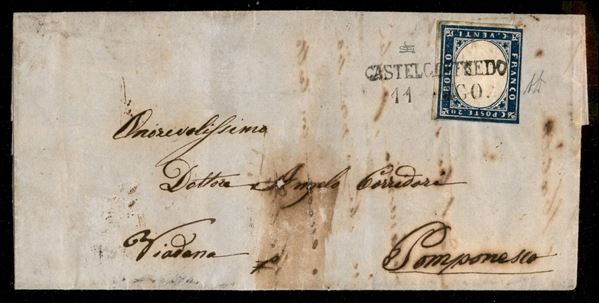 CASTELGOFFREDO
11 AGO.
FRANCO
C. VENTI
BOLLO
C. POSTE 20
Onorevolissimo
Dottore Angelo Corredori
Viadana
Pomponesco